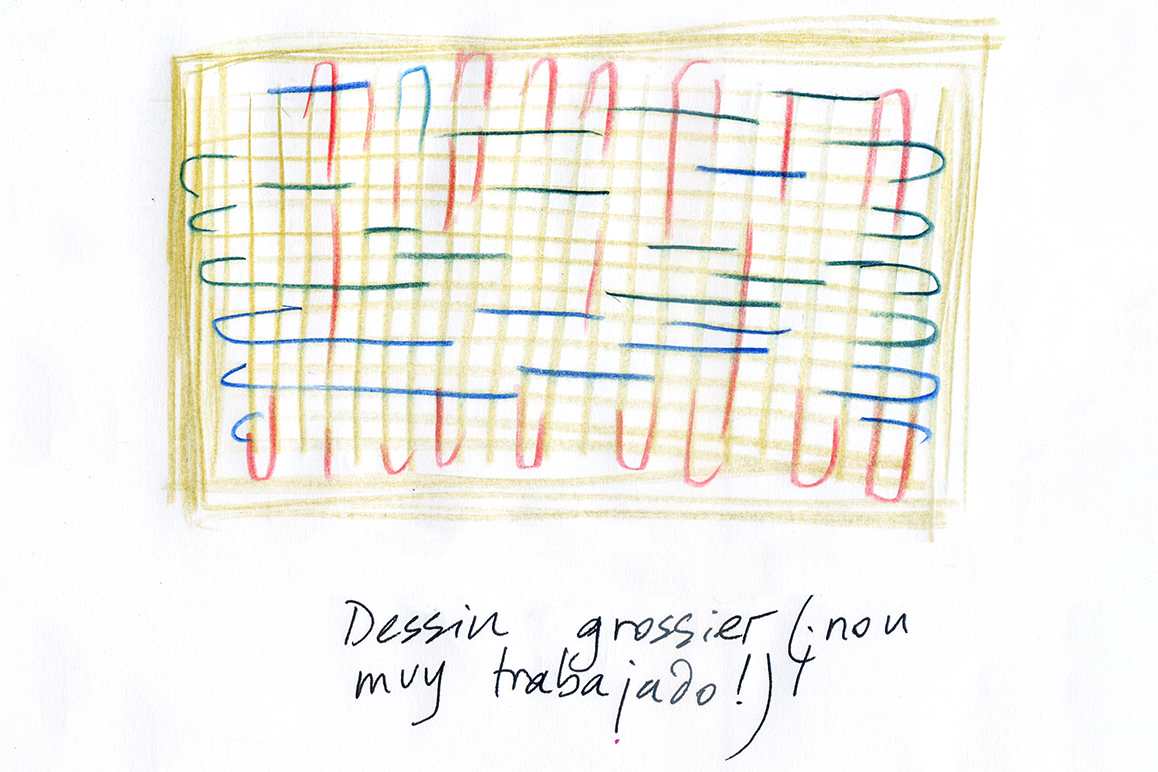 Dessin grossier (¡non
muy trabajado!)